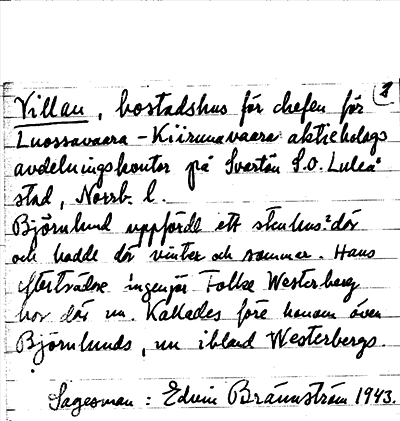 2
Villan, bostadshus för chefen för
Luossavaara-Kiirunavaara aktiebolags
avdelningskontor på Svartön S.O. Luleå
stad, Norrb. l.
Björnlund uppförde ett stenhus² där
och bodde där vinter och sommar. Hans
efterträdare ingenjör Folke Westerberg
bor där nu. Kallades före honom även
Björnlunds, nu ibland Westerbergs.
Sagesman: Edvin Brännström 1943.